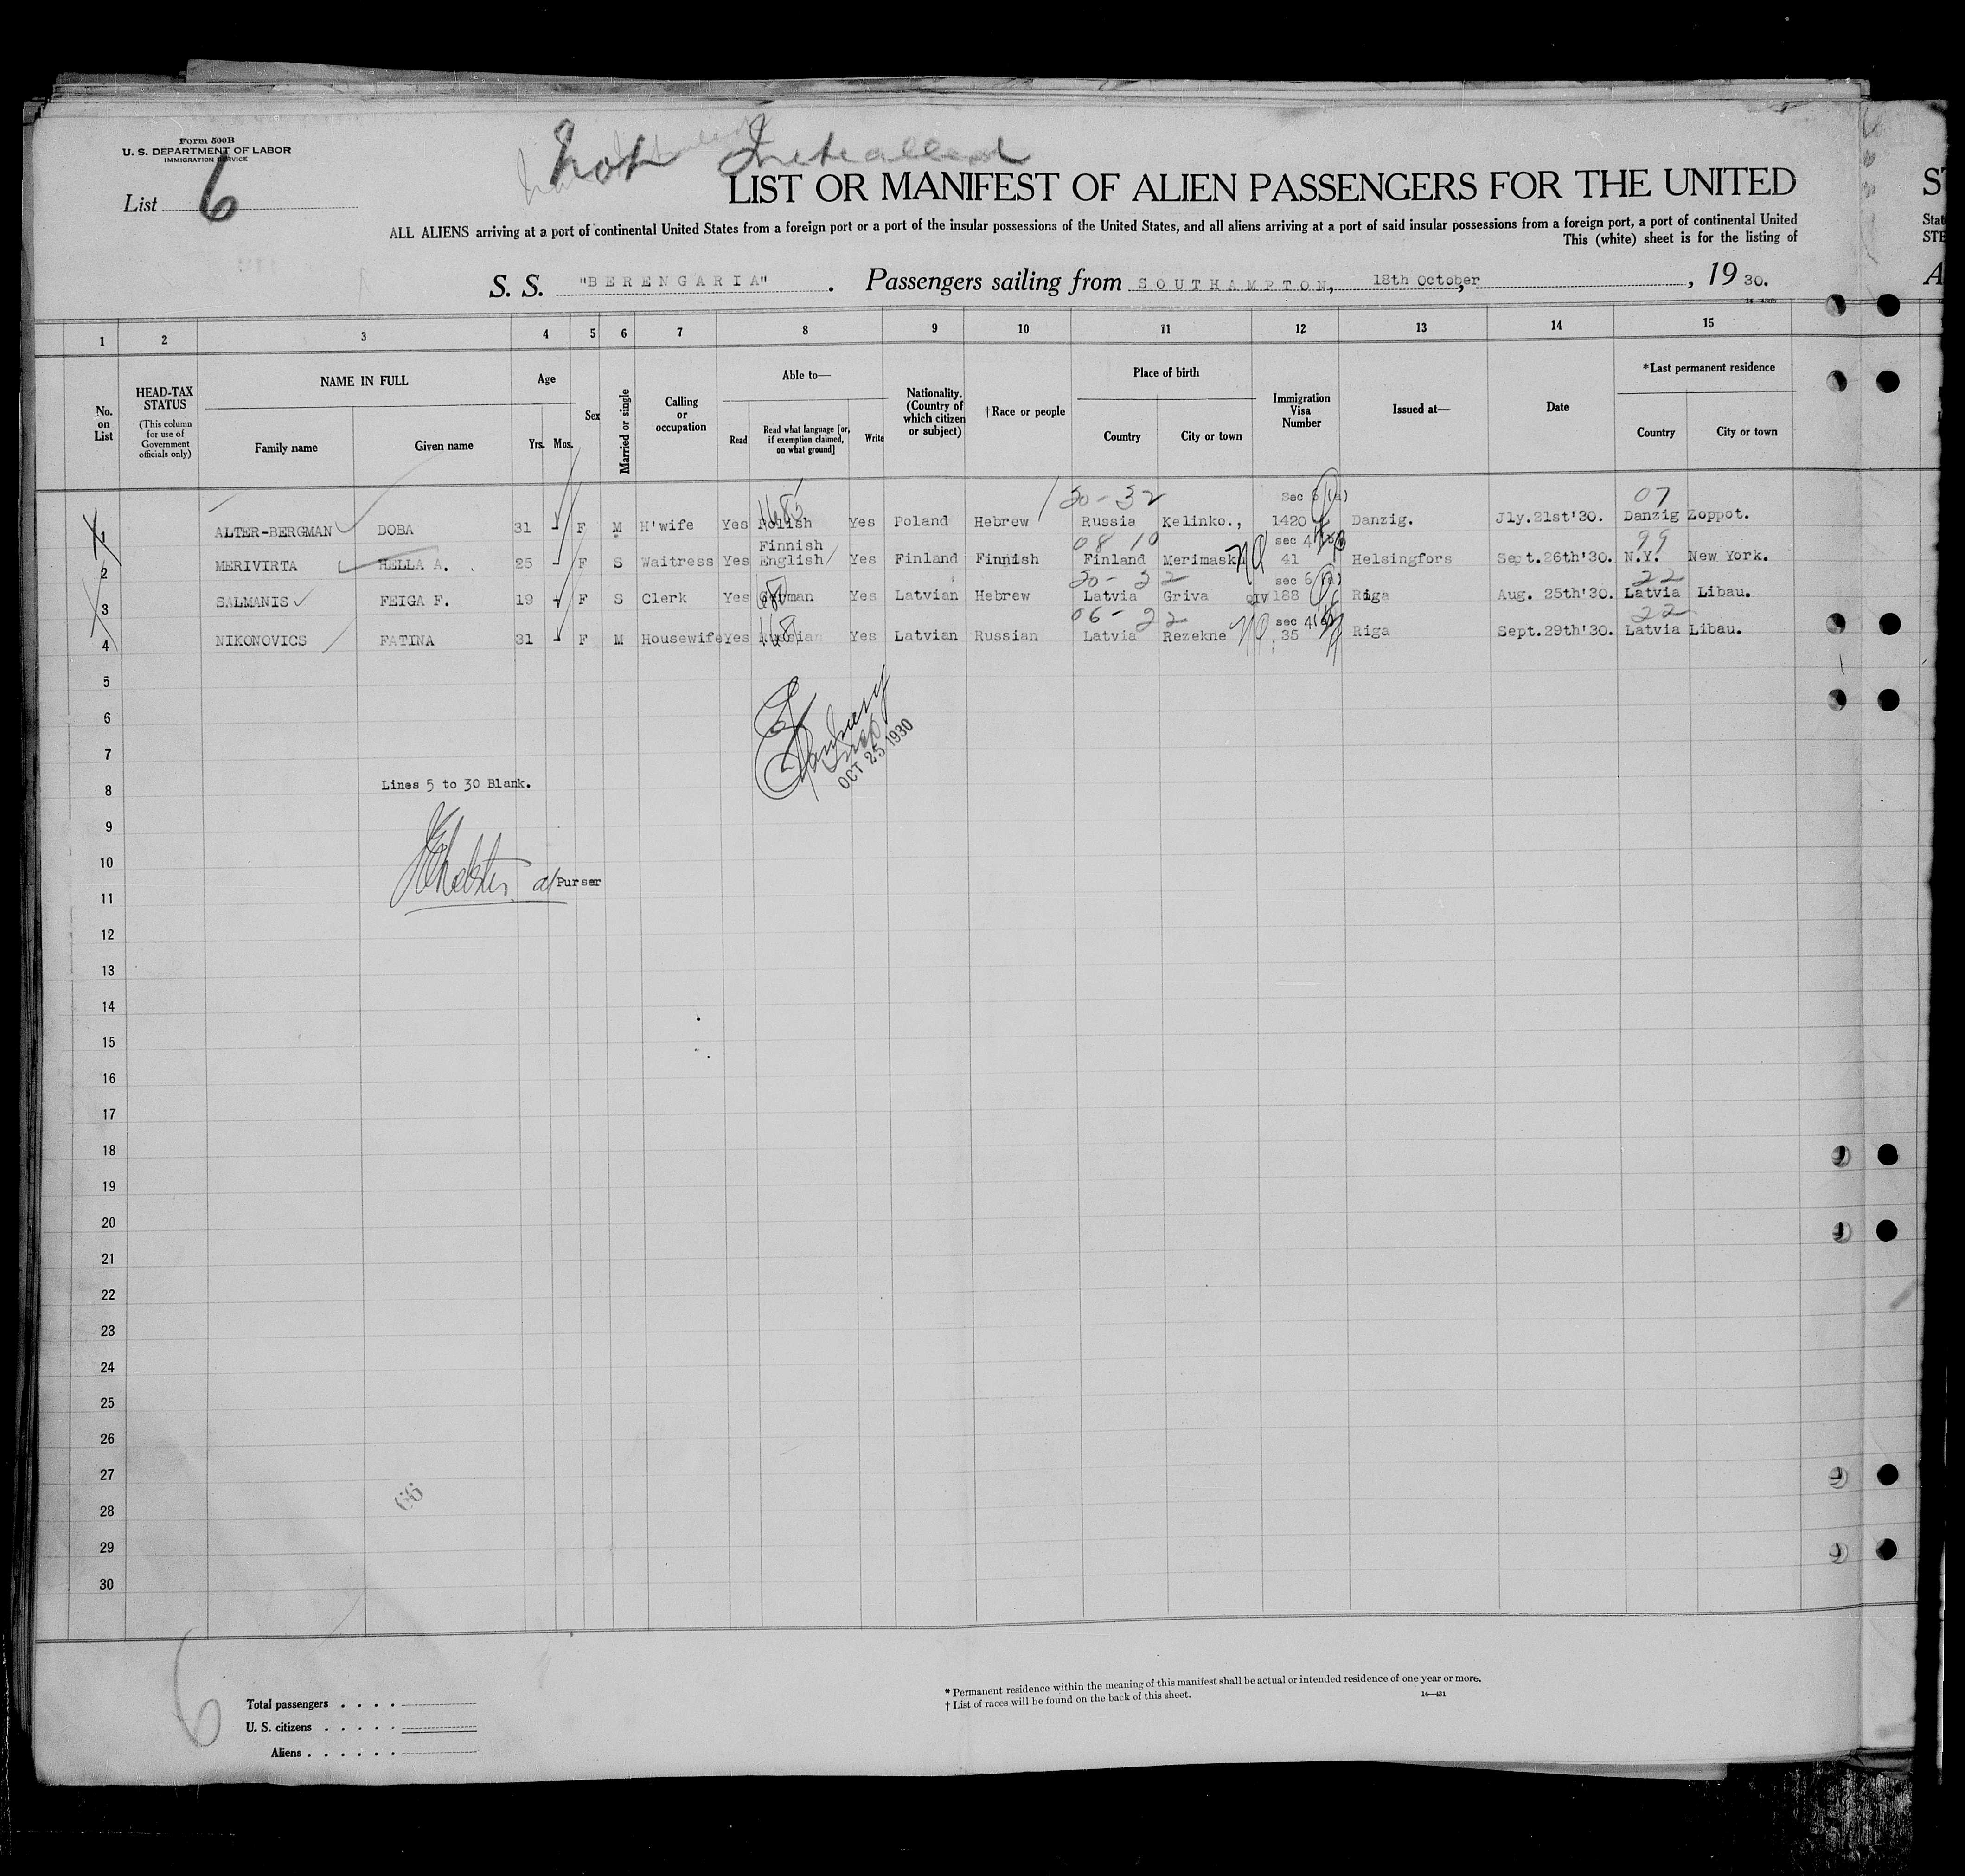 Form 500B
U. S. DEPARTMENT OF LABOR
IMMIGRATION SERVICE
Not Initialled
List 6
LIST OR MANIFEST OF ALIEN PASSENGERS FOR THE UNITED
ST
ALL ALIENS arriving at a port of continental United States from a foreign port or a port of the insular possessions of the United States, and all aliens arriving at a port of said insular possessions from a foreign port, a port of continental United
Stat
This (white) sheet is for the listing of
STE
S. S. "BERENGARIA" . Passengers sailing from SOUTHAMPTON, 18th October, , 19 30.
A
1 2 3 4 5 6 7 8 9 10 11 12 13 14 15
No. on List
HEAD-TAX STATUS
(This column for use of Government officials only)
NAME IN FULL
Family name Given name
Age
Yrs. Mos.
Sex
Married or single
Calling or occupation
Able to—
Read
Read what language [or, if exemption claimed, on what ground]
Write
Nationality. (Country of which citizen or subject)
†Race or people
Place of birth
Country City or town
Immigration Visa Number
Issued at—
Date
*Last permanent residence
Country City or town
20-32 Sec 6 (a) 07
1 ALTER-BERGMAN DOBA 31 - F M H'wife Yes Polish Yes Poland Hebrew Russia Kelinko., 1420 Danzig. Jly.21st'30. Danzig Zoppot.
Finnish 08 10 sec 4 99
2 MERIVIRTA HELLA A. 25 - F S Waitress Yes English Yes Finland Finnish Finland Merimask 41 Helsingfors Sept.26th'30. N.Y. New York.
20-32 sec 6 (a) 22
3 SALMANIS FEIGA F. 19 - F S Clerk Yes German Yes Latvian Hebrew Latvia Griva QIV 188 Riga Aug. 25th'30. Latvia Libau.
06-22 sec 4 22
4 NIKONOVICS FATINA 31 - F M Housewife Yes Russian Yes Latvian Russian Latvia Rezekne 35 Riga Sept.29th'30. Latvia Libau.
5
6
7
OCT 25 1930
8 Lines 5 to 30 Blank.
9
10
a/Purser
11
12
13
14
15
16
17
18
19
20
21
22
23
24
25
26
27
66
28
29
30
6
* Permanent residence within the meaning of this manifest shall be actual or intended residence of one year or more.
† List of races will be found on the back of this sheet.
14—431
Total passengers . . . .
U. S. citizens . . . . .
Aliens . . . . . .